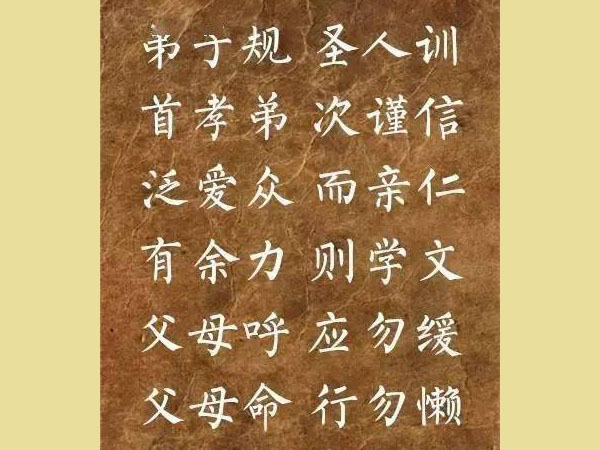 弟子规 圣人训
首孝弟 次谨信
泛爱众 而亲仁
有余力 则学文
父母呼 应勿缓
父母命 行勿懒